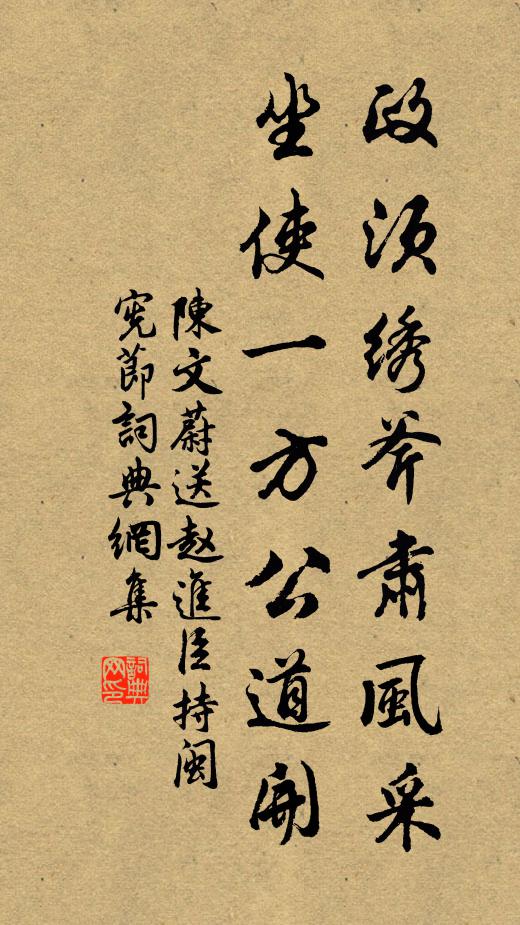 政须綉斧肅風采
坐使一方公道開
陳文蔚送赵進臣持闽
宪節詞典網集
詞典
网印